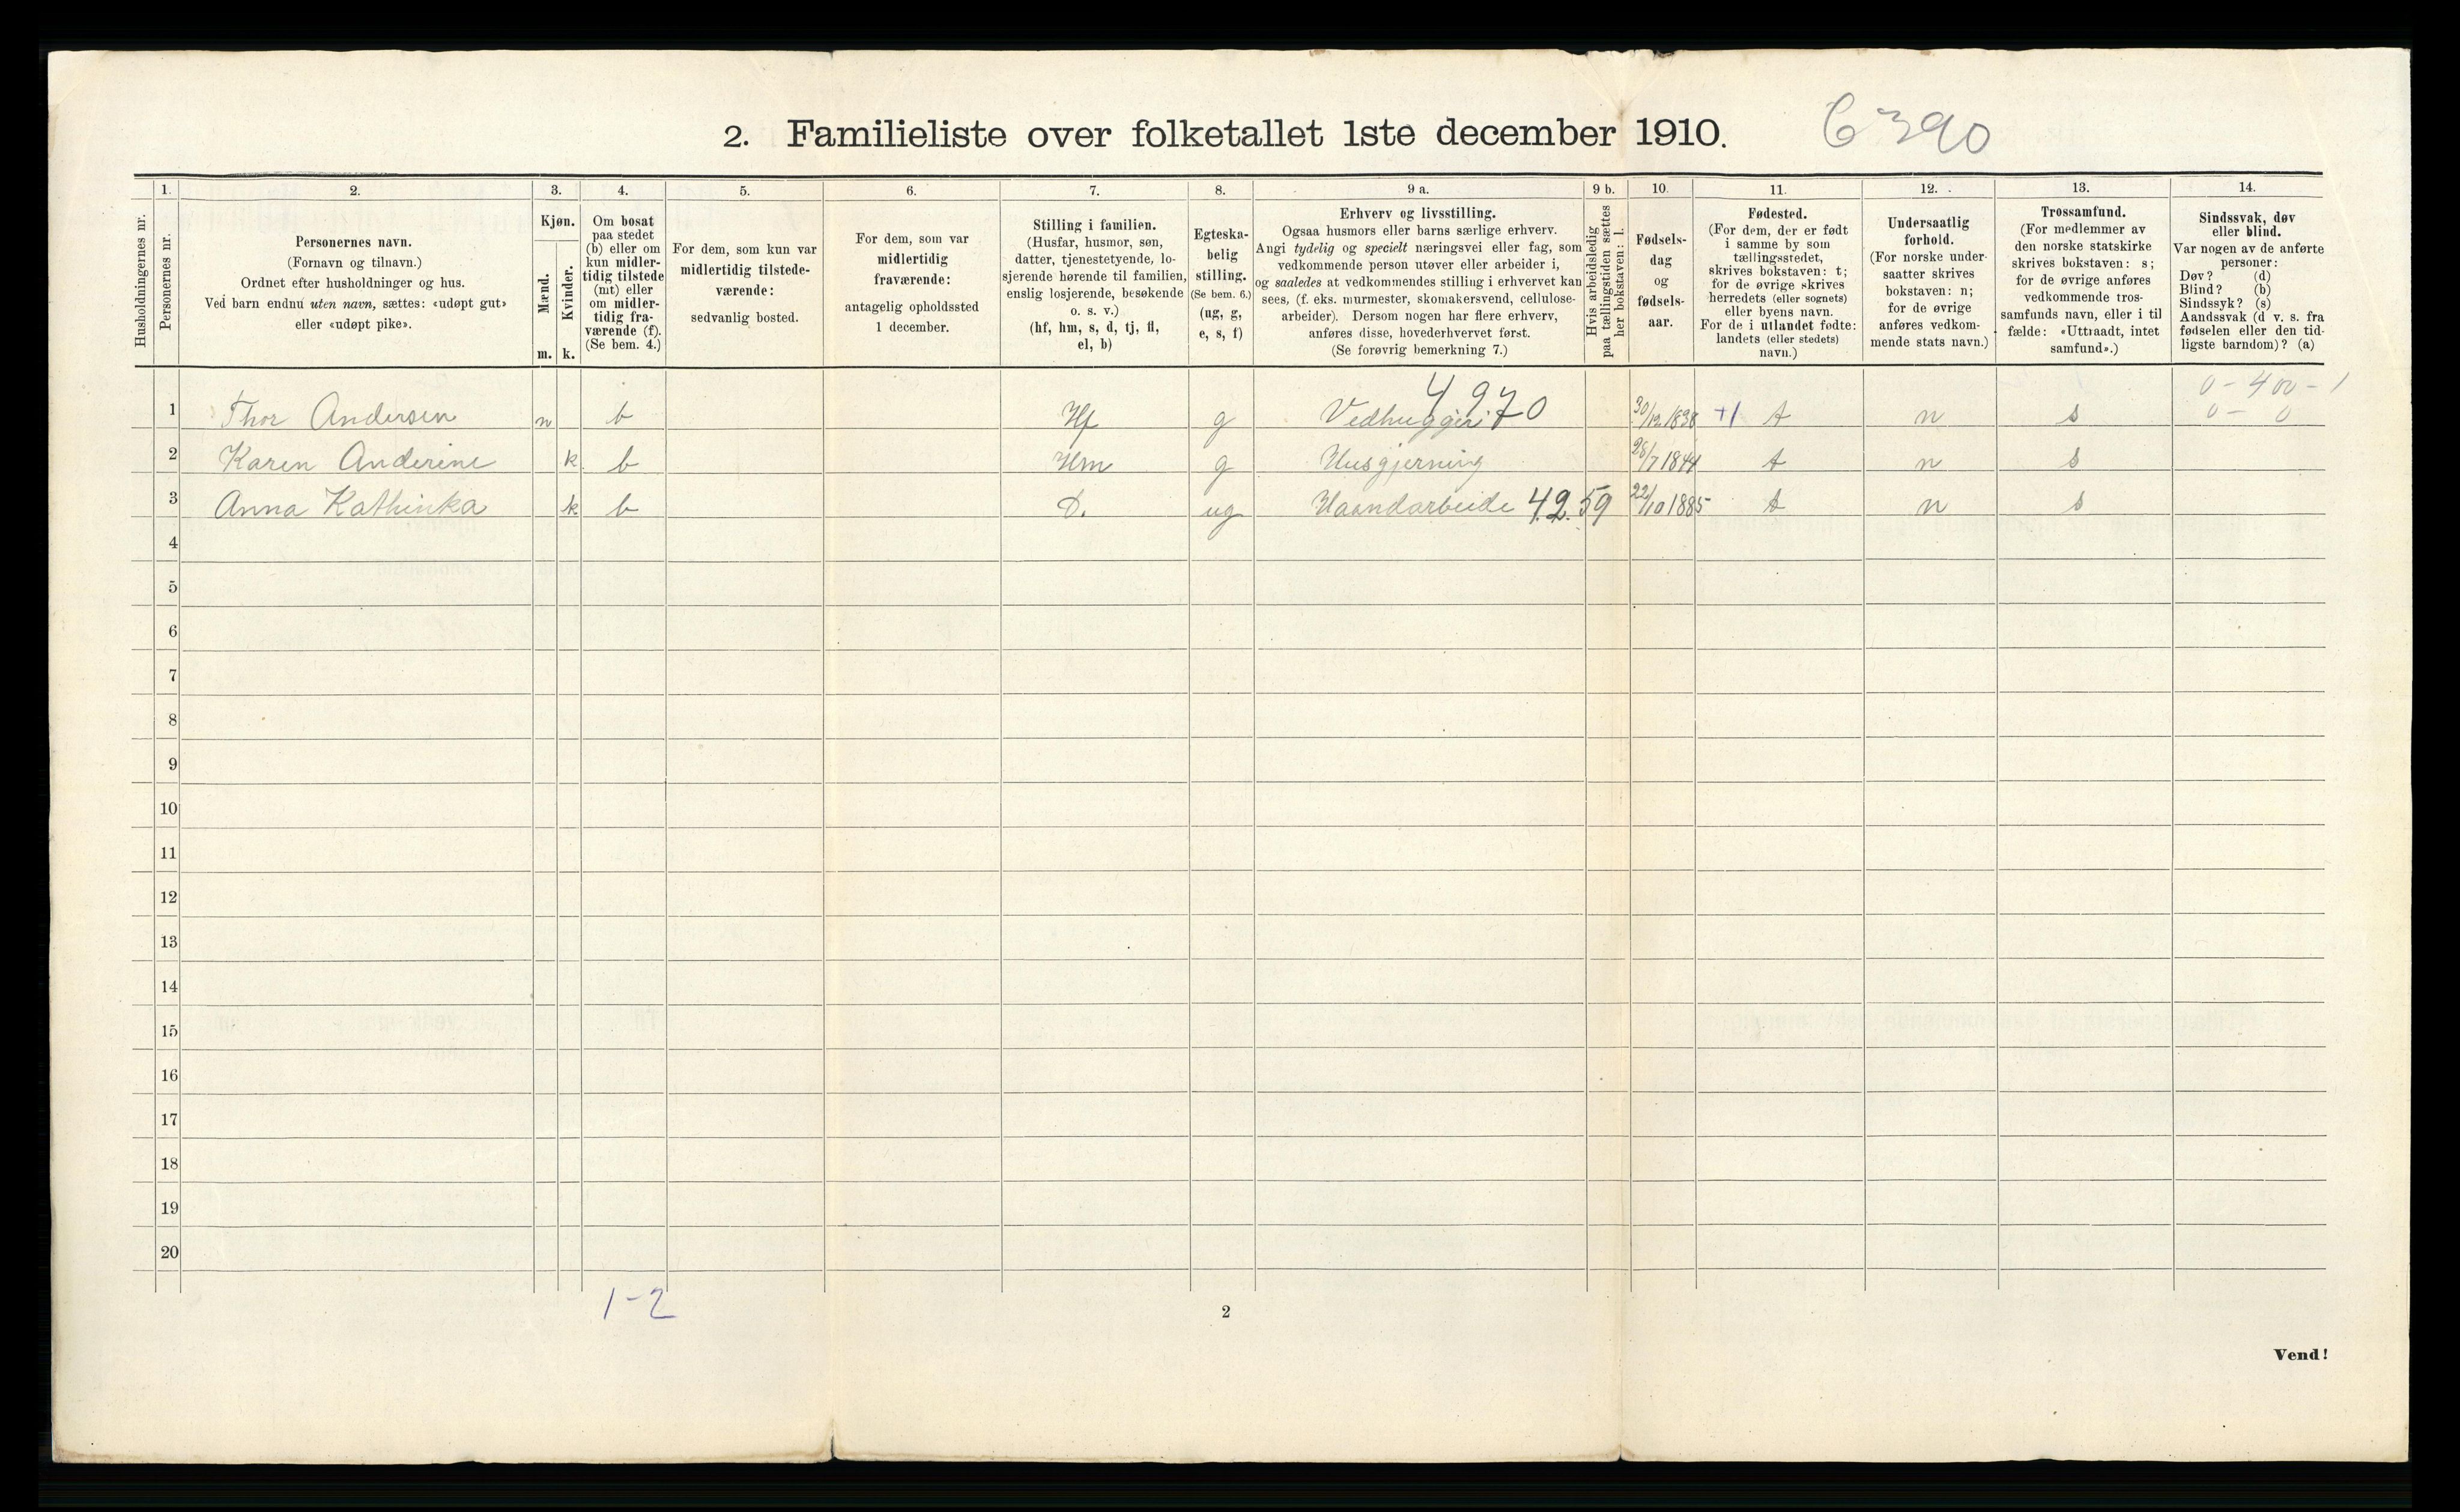 2. Familieliste over folketallet 1ste december 1910. 6390
1. 2. 3. 4. 5. 6. 7. 8. 9 a. 9 b. 10. 11. 12. 13. 14.
Husholdningernes nr.
Personernes nr.
Personernes navn.
(Fornavn og tilnavn.)
Ordnet efter husholdninger og hus.
Ved barn endnu uten navn, sættes: «udøpt gut»
eller «udøpt pike».
Kjøn.
Mænd.
m.
Kvinder.
k.
Om bosat
paa stedet
(b) eller om
kun midler-
tidig tilstede
(mt) eller
om midler-
tidig fra-
værende (f).
(Se bem. 4.)
For dem, som kun var
midlertidig tilstede-
værende:
sedvanlig bosted.
For dem, som var
midlertidig
fraværende:
antagelig opholdssted
1 december.
Stilling i familien.
(Husfar, husmor, søn,
datter, tjenestetyende, lo-
sjerende hørende til familien,
enslig losjerende, besøkende
o. s. v.)
(hf, hm, s, d, tj, fl,
el, b)
Egteska-
belig
stilling.
(Se bem. 6.)
(ug, g,
e, s, f)
Erhverv og livsstilling.
Ogsaa husmors eller barns særlige erhverv.
Angi tydelig og specielt næringsvei eller fag, som
vedkommende person utøver eller arbeider i,
og saaledes at vedkommendes stilling i erhvervet kan
sees, (f. eks. murmester, skomakersvend, cellulose-
arbeider). Dersom nogen har flere erhverv,
anføres disse, hovederhvervet først.
(Se forøvrig bemerkning 7.)
Hvis arbeidsledig
paa tællingstiden sættes
her bokstaven: l.
Fødsels-
dag
og
fødsels-
aar.
Fødested.
(For dem, der er født
i samme by som
tællingsstedet,
skrives bokstaven: t;
for de øvrige skrives
herredets (eller sognets)
eller byens navn.
For de i utlandet fødte:
landets (eller stedets)
navn.)
Undersaatlig
forhold.
(For norske under-
saatter skrives
bokstaven: n;
for de øvrige
anføres vedkom-
mende stats navn.)
Trossamfund.
(For medlemmer av
den norske statskirke
skrives bokstaven: s;
for de øvrige anføres
vedkommende tros-
samfunds navn, eller i til
fælde: «Uttraadt, intet
samfund».)
Sindssvak, døv
eller blind.
Var nogen av de anførte
personer:
Døv? (d)
Blind? (b)
Sindssyk? (s)
Aandssvak (d v. s. fra
fødselen eller den tid-
ligste barndom)? (a)
4970 0-400-1
1 Thor Andersen m b Hf g Vedhugger 30/12 1838 +1 t n s 0- 0
2 Karen Anderine k b Hm g Husgjerning 26/7 1844 t n s
3 Anna Kathinka k b D. ug Haandarbeide 42.59 22/10 1885 t n s
4
5
6
7
8
9
10
11
12
13
14
15
16
17
18
19
20
1-2
2
Vend!